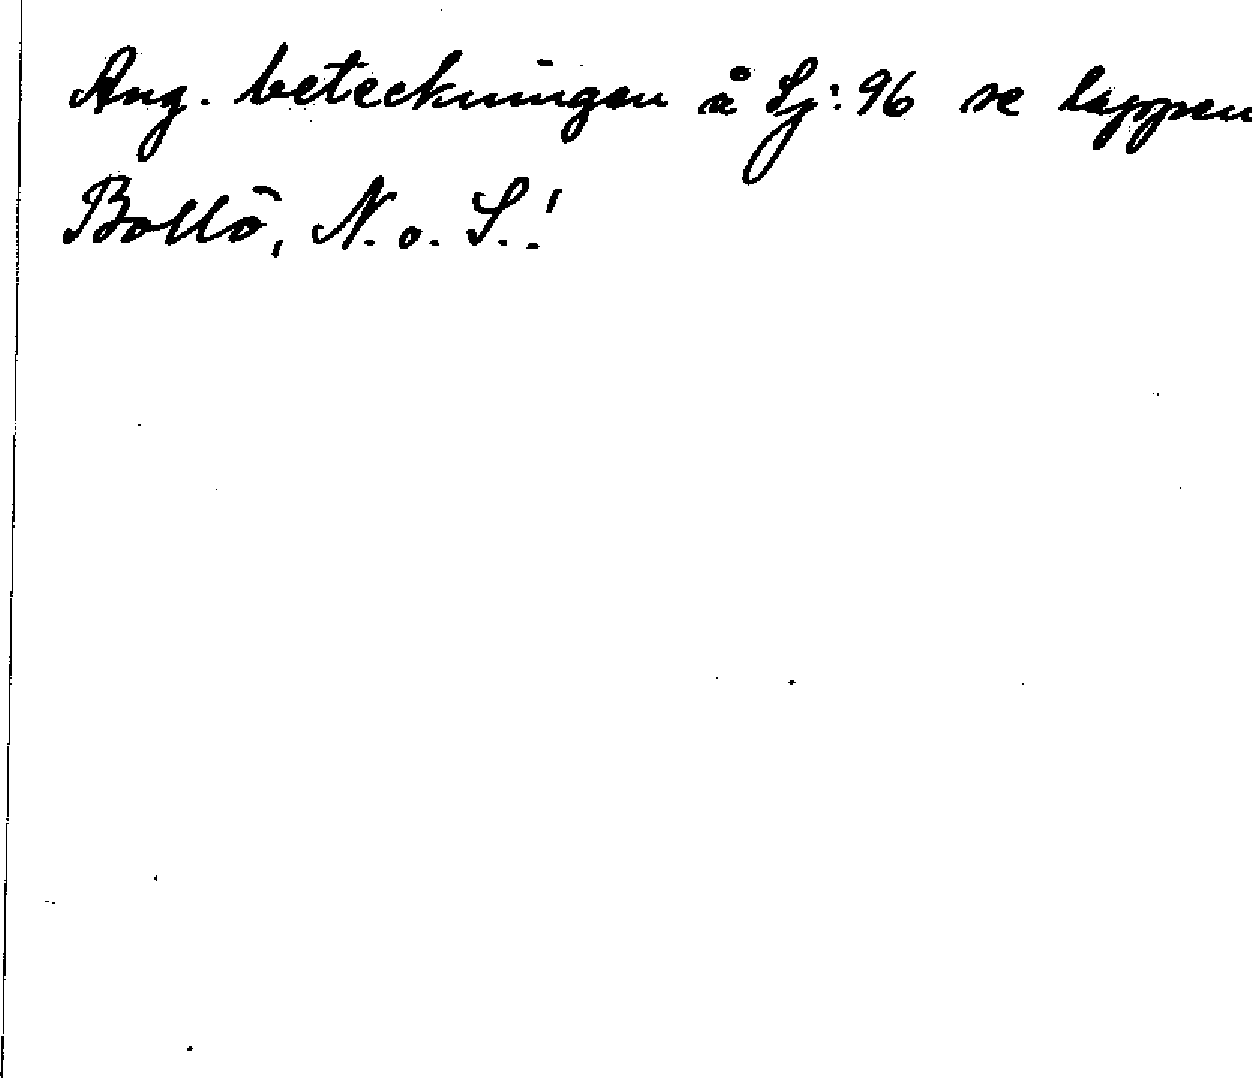 Ang. beteckningen å Lj: 96 se lappen
Bollö, N. o. S.!